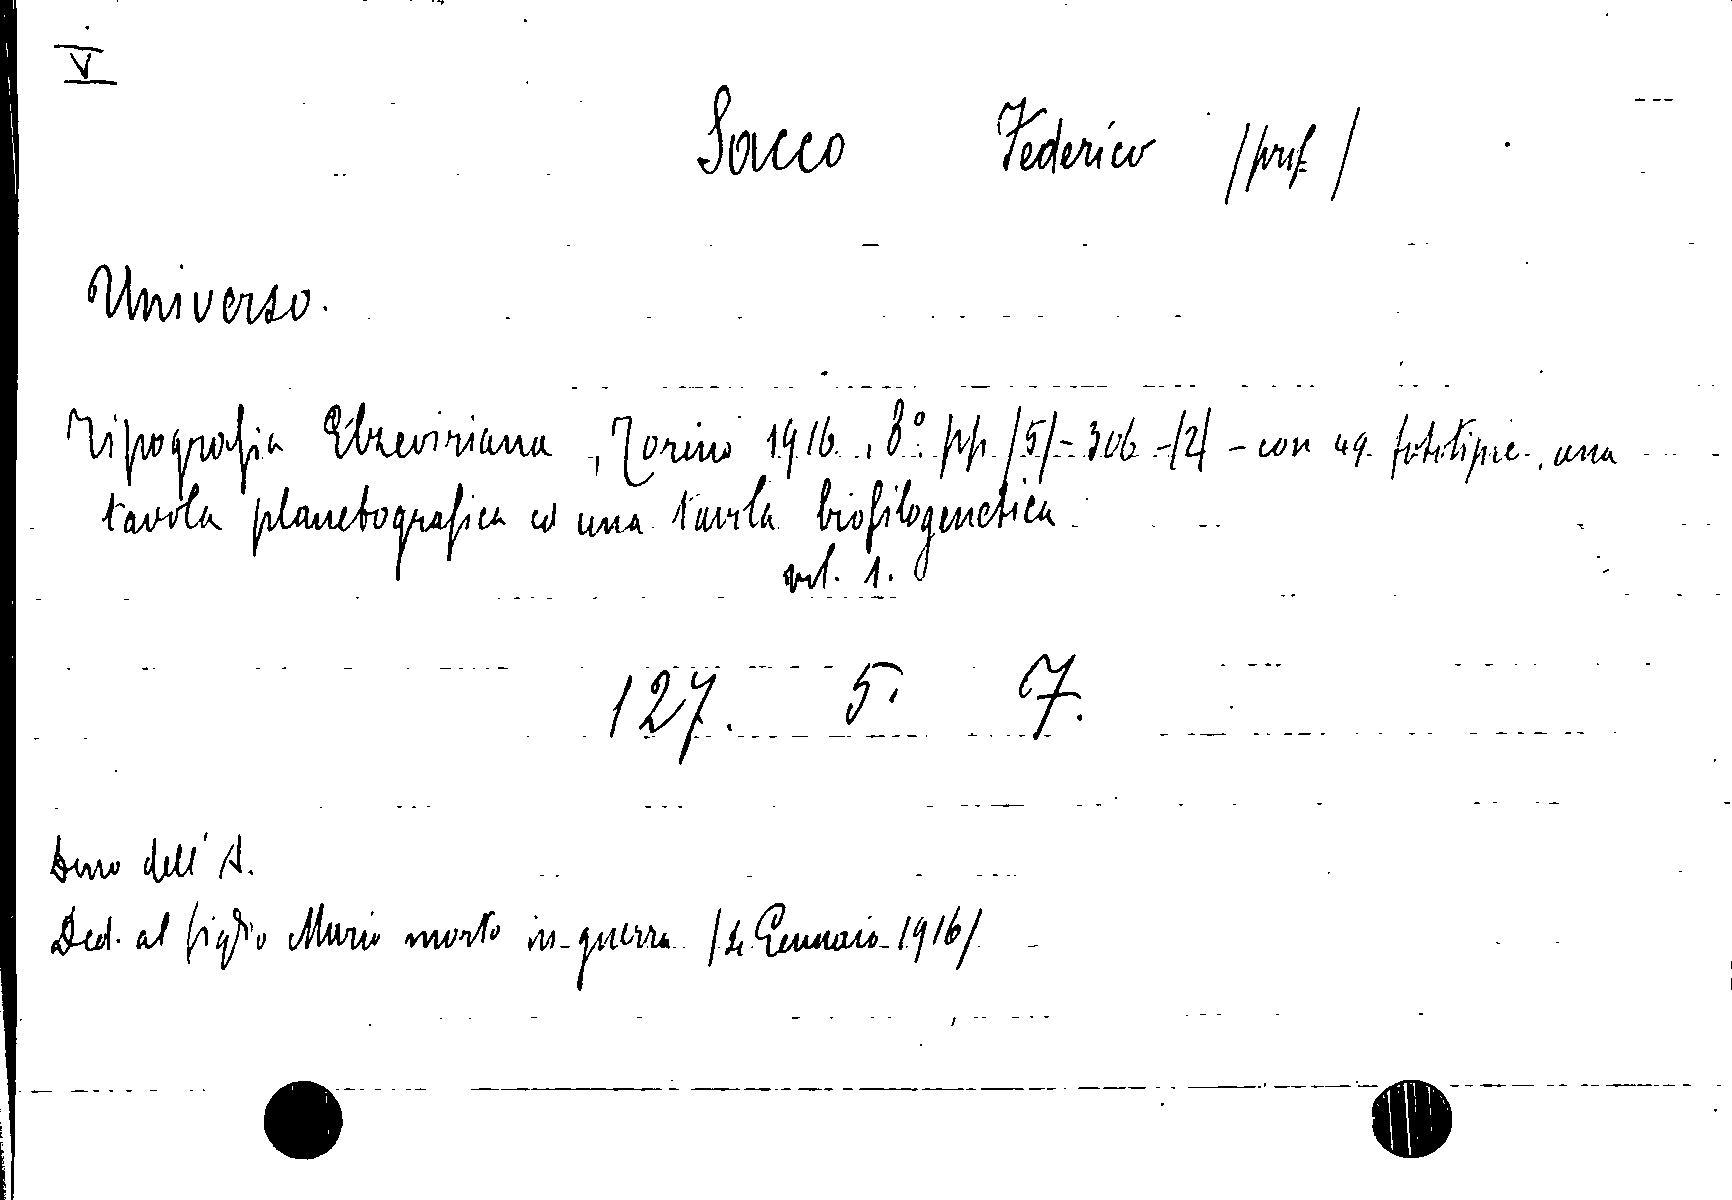 V
Sacco Federico /prof/
Universo.
Tipografia Elzeviriana, Torino 1916. 8° pp /5/-306-/2/ - con 49 fototipie, una
tavola planetografica ed una tavola biofilogenetica
vol. 1.
127. 5. 7.
Dono dell'A.
Ded. al figlio Mario morto in guerra /4 Gennaio 1916/